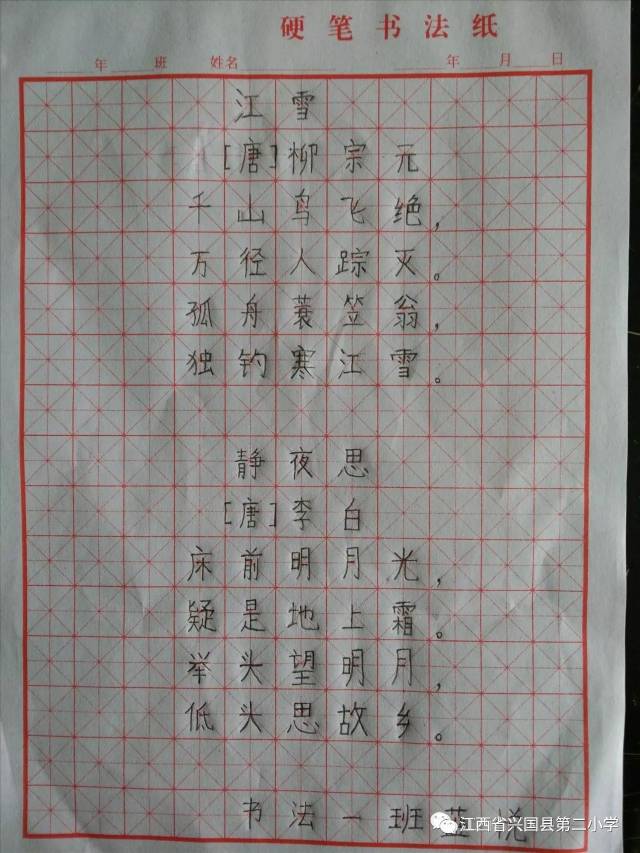 硬笔书法纸
年 班 姓名 年 月 日
江雪
[唐]柳宗元
千山鸟飞绝，
万径人踪灭。
孤舟蓑笠翁，
独钓寒江雪。
静夜思
[唐]李白
床前明月光，
疑是地上霜。
举头望明月，
低头思故乡。
书法一班 悦
江西省兴国县第二小学